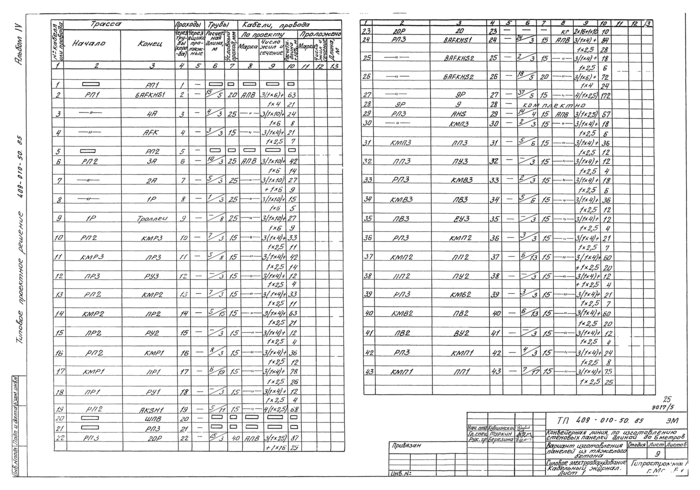 Альбом IV
Типовое проектное решение 409-010-50.85
Трасса Проходы Трубы Кабели, провода
Начало Конец По проекту Проложено
Марка Марка
1 2 3 4 5 6 7 8 9 10 11 12 13
1 РП1 1
2 РП1 БАFKHБ1 2 20 АПВ 3(1×6)+ 63
1×4 21
3 4А 3 25 3(1×10)+ 24
1×6 8
4 АFK 4 15 3(1×4)+ 21
1×2,5 7
5 РП2 5
6 РП2 3А 6 25 АПВ 3(1×10)+ 42
1×6 14
7 2А 7 25 3(1×10) 27
+1×6 9
8 1Р 8 25 3(1×10)+ 15
1×6 5
9 1Р Троллеи 9 25 3(1×10)+ 27
1×6 9
10 РП2 КМР3 10 15 3(1×4)+ 33
1×2,5 11
11 КМР3 ПР3 11 15 3(1×4)+ 42
1×2,5 14
12 ПР3 РУ3 12 15 3(1×4)+ 12
1×2,5 4
13 РП2 КМР2 13 15 3(1×4)+ 33
1×2,5 11
14 КМР2 ПР2 14 15 3(1×4)+ 63
1×2,5 21
15 ПР2 РУ2 15 15 3(1×4)+ 12
1×2,5 4
16 РП2 КМР1 16 15 3(1×4)+ 36
1×2,5 12
17 КМР1 ПР1 17 15 3(1×4)+ 78
1×2,5 26
18 ПР1 РУ1 18 15 3(1×4)+ 12
1×2,5 4
19 РП2 АКБН1 19 15 4(1×2,5) 68
20 ШПВ 20
21 РП3 21
22 РП3 20Р 22 40 АПВ 3(1×25) 87
+1×16 25
1 2 3 4 5 6 7 8 9 10 11 12 13
23 20Р 20 23 КГ 10
24 РП3 БАFKHБ1 24 15 АПВ 3(1×4)+ 84
1×2,5 28
25 БАFKHБ2 25 15 3(1×4)+ 18
1×2,5 6
26 БАFKHБ2 26 20 3(1×6)+ 72
1×4 24
27 9Р 27 15 4(1×2,5) 172
28 9Р 9 28 комплектно
29 РП3 АНБ 29 15 АПВ 3(1×2,5) 57
30 КМП3 30 15 3(1×4)+ 18
1×2,5 6
31 КМП3 ПП3 31 15 3(1×4)+ 36
1×2,5 12
32 ПП3 ПУ3 32 15 3(1×4)+ 12
1×2,5 4
33 РП3 КМВ3 33 15 3(1×4)+ 18
1×2,5 6
34 КМВ3 ПВ3 34 15 3(1×4)+ 36
1×2,5 12
35 ПВ3 ВУ3 35 15 3(1×4)+ 12
1×2,5 4
36 РП3 КМП2 36 15 3(1×4)+ 21
1×2,5 7
37 КМП2 ПП2 37 15 3(1×4)+ 60
1×2,5 20
38 ПП2 ПУ2 38 15 3(1×4)+ 12
1×2,5 4
39 РП3 КМВ2 39 15 3(1×4)+ 21
1×2,5 7
40 КМВ2 ПВ2 40 15 3(1×4)+ 60
1×2,5 20
41 ПВ2 ВУ2 41 15 3(1×4)+ 12
1×2,5 4
42 РП3 КМП1 42 15 3(1×4)+ 24
1×2,5 8
43 КМП1 ПП1 43 15 3(1×4)+ 75
1×2,5 25
25
ТП 409-010-50.85 ЭМ
Конвейерная линия по изготовлению
стеновых панелей длиной до 6 метров
Вариант изготовления
панелей из тяжелого
бетона
Стадия Лист Листов
9
Силовое электрооборудование
Кабельный журнал.
Лист 1
Привязан
Инв.№